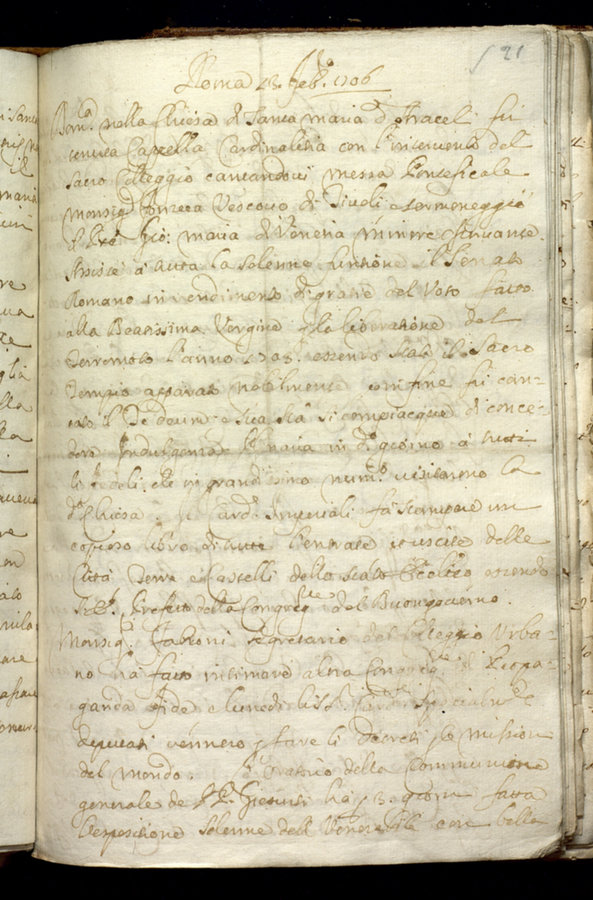 121
Roma 13. Feb.º 1706
Dom.ca nella Chiesa di Santa Maria d'Aracel fu
tenuta Cappella Cardinalitia con l'intervento del
Sacro Colleggio cantandovi messa Pontificale
Monsig.r Fonzeca Vescovo di Tivoli e sermoneggiò
il Pre Gio: Maria di Venetia Minore osservante.
Assisté à tutta la solenne funtione il Senato
Romano in rendimento di gratie del Voto fatto
alla Beatissima Vergine p la liberatione dal
Terremoto l'anno 1703. essendo stato il Sacro
Tempio apparato nobilmente con fine fu can-
tato il Te Deum e Sua Stà si compiacque di conce-
dere Indulgenza Plenaria in d.º giorno à tutti
li fedeli che in grandissimo num.º visitarono la
d.a Chiesa. Il Card.l Imperiali fà stampare un
copioso libro di tutte l'entrate et uscite delle
Città Terre e Castelli dello Stato Eccl.ico essendo
S. E. Prefetto della Congreg.ne del Buongoverno.
Monsig.r Fabroni segretario del Colleggio Urba-
no hà fatto intimare altra Congreg.ne di Propa-
ganda Fide e lunedì li SS.ri Card.li specialm.te
deputati vennero p fare li Decreti p le Missioni
del mondo. L'oratorio della Communione
generale de PP. Giesuiti hà p 3. giorni fatta
l'espositione solenne dell Venerabile con bella